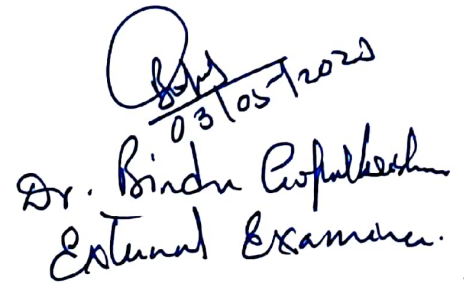 03/05/2020
Dr. Bindu Gopalkrishnan
External Examiner.